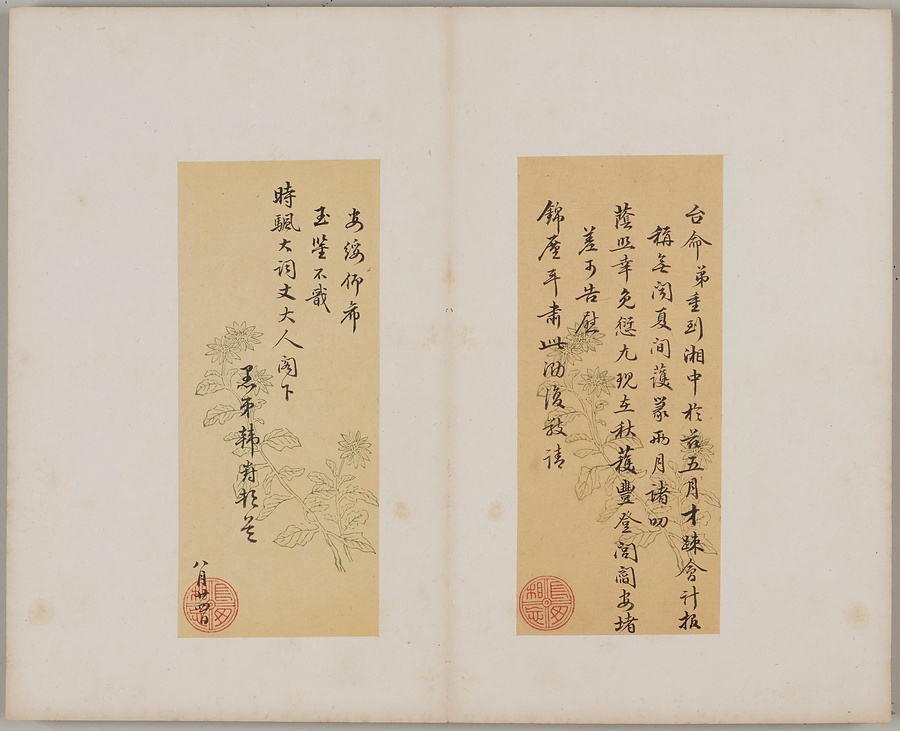 台命弟重到湘中於茲五月才疎會計報
稱無閒夏間護篆兩月諸叨
蔭照幸免愆尤現在秋穫豐登閭閻安堵
差可告慰
錦廑耳肅此泐復敬請
安綏仰希
玉鑒不戩
時颿大詞丈大人閣下
弟韓
八月廿四日